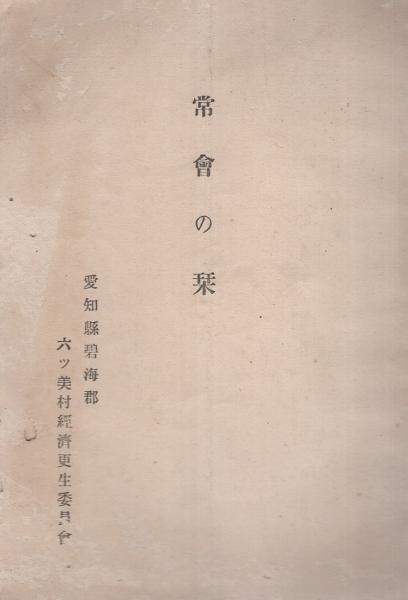 常會の栞
愛知縣碧海郡
六ツ美村經濟更生委員會